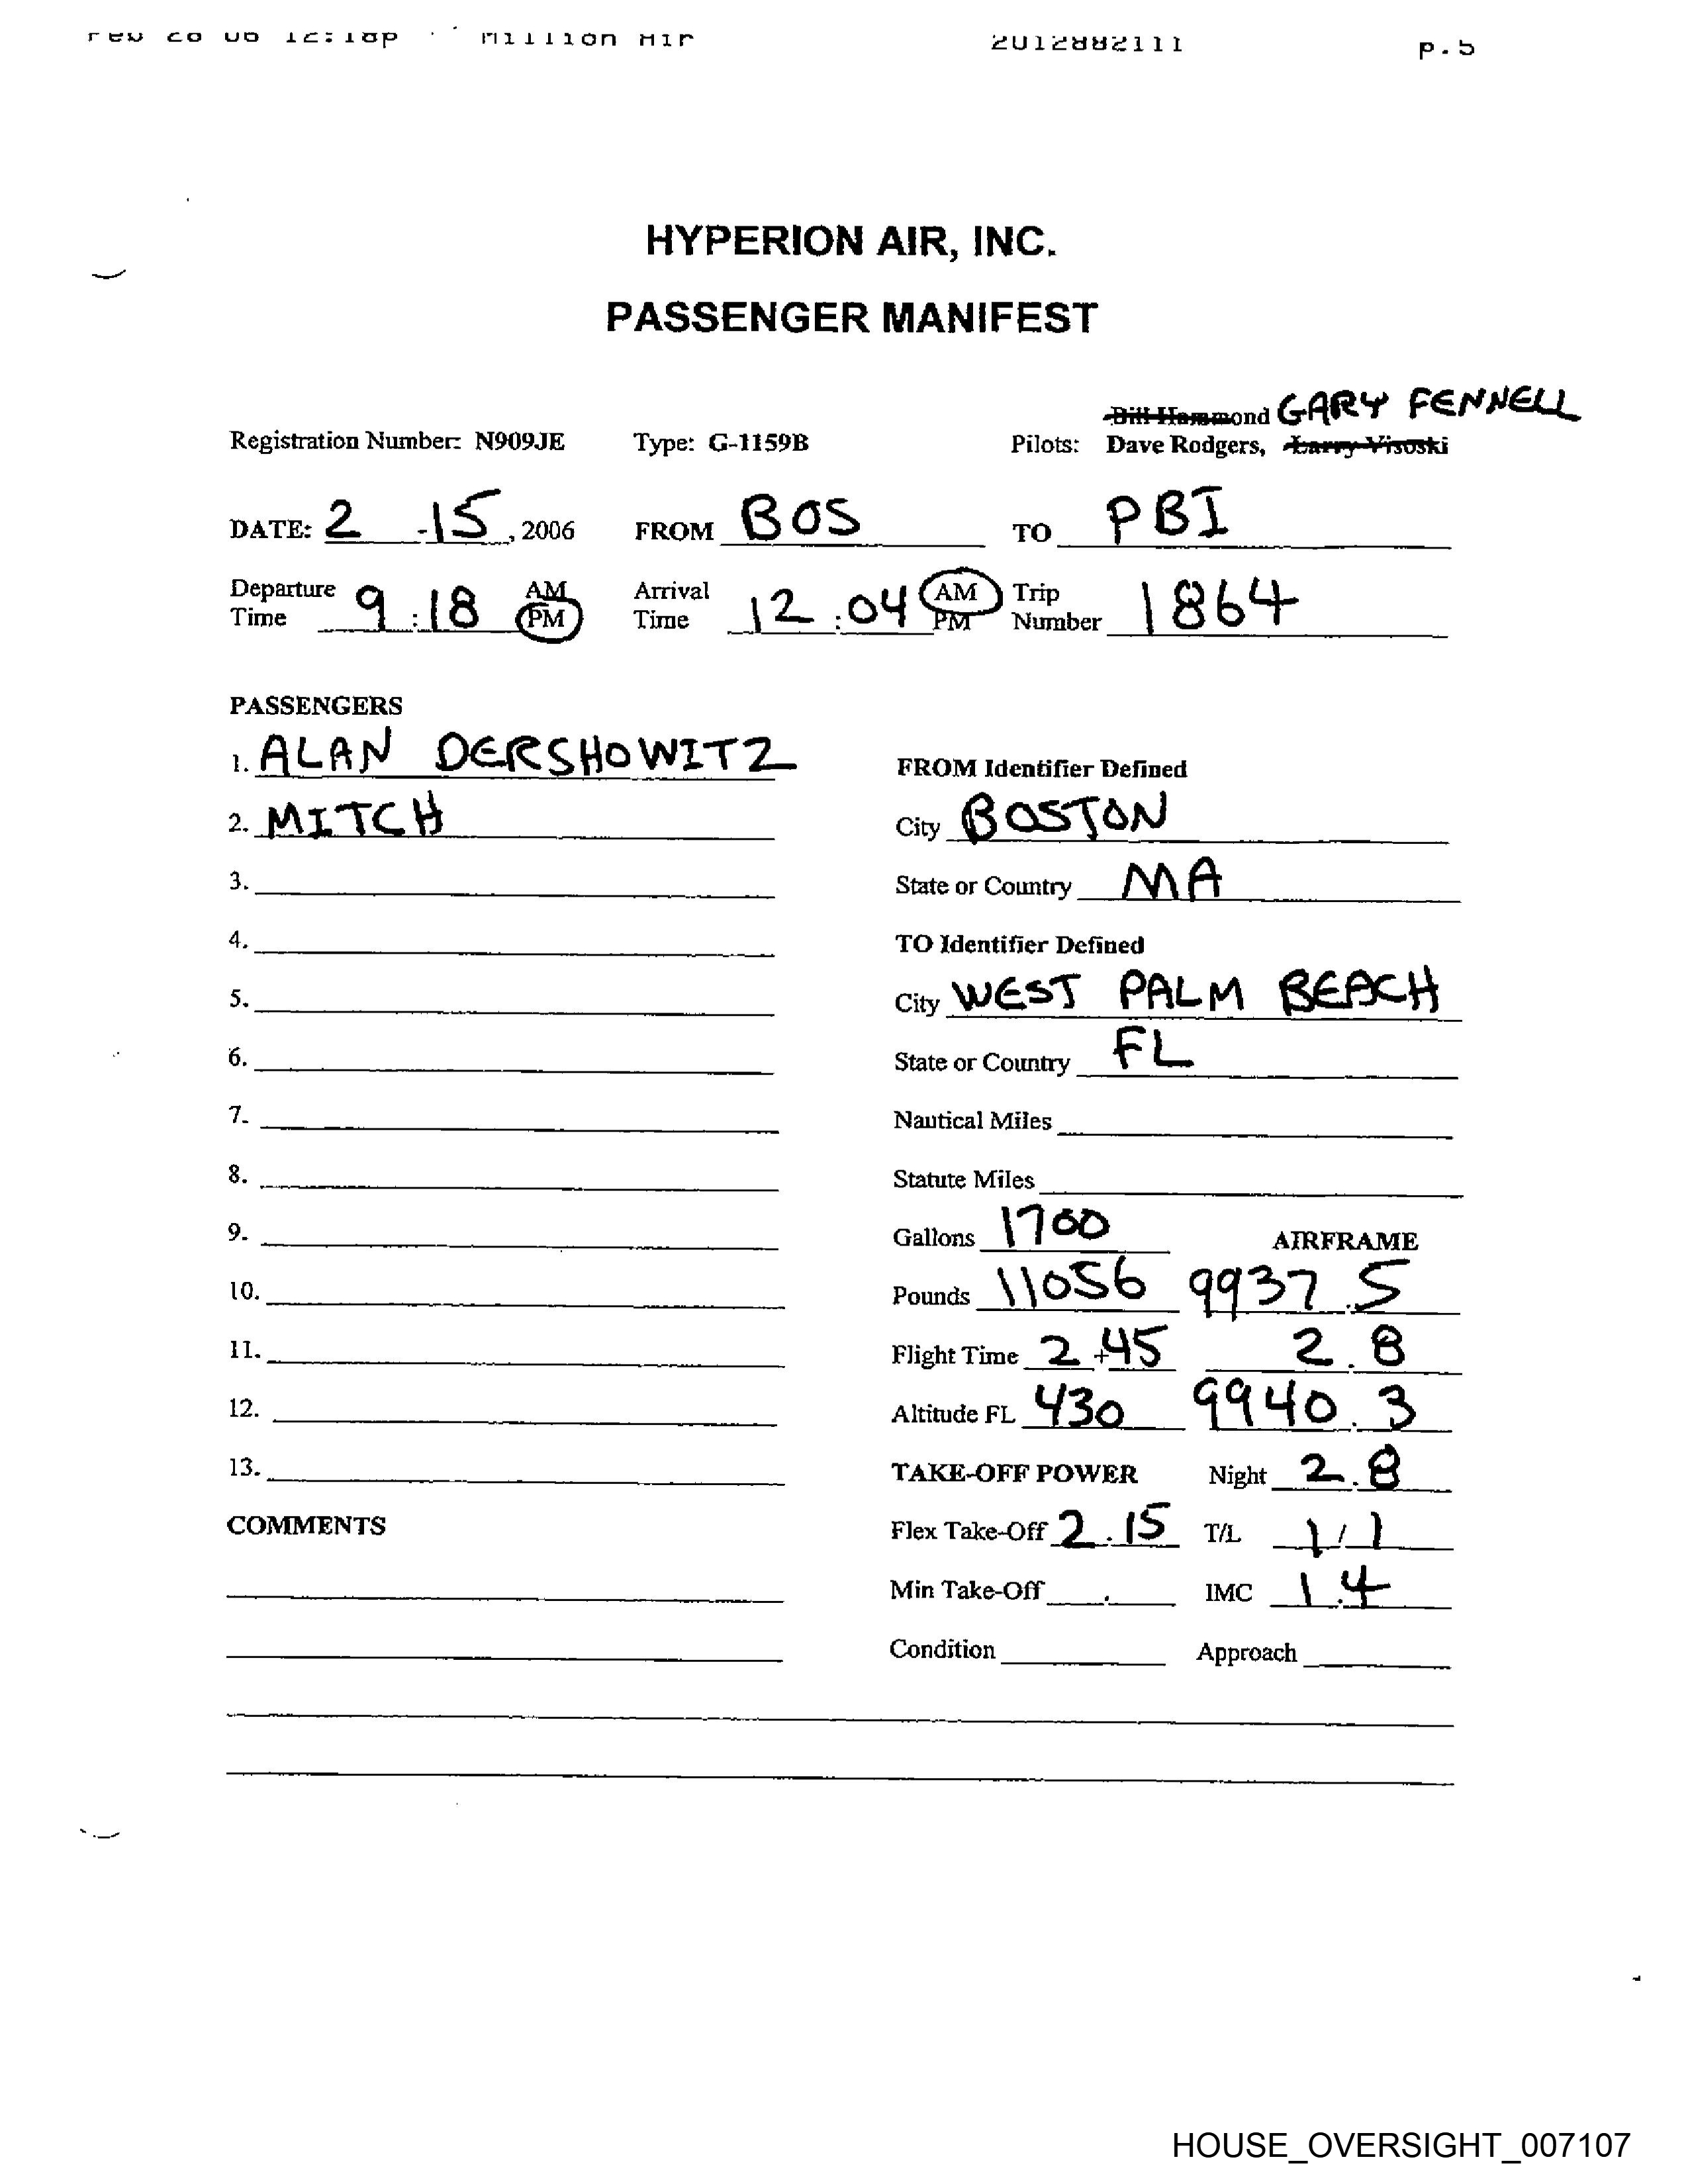 Feb 28 06 12:18p Million Air 2012882111 p.5
HYPERION AIR, INC.
PASSENGER MANIFEST
Bill Hammond GARY FENNELL
Registration Number: N909JE Type: G-1159B Pilots: Dave Rodgers, Larry Visoski
DATE: 2 -15, 2006 FROM BOS TO PBI
Departure Time 9:18 AM PM Arrival Time 12:04 AM PM Trip Number 1864
PASSENGERS
1. ALAN DERSHOWITZ
2. MITCH
3.
4.
5.
6.
7.
8.
9.
10.
11.
12.
13.
COMMENTS
FROM Identifier Defined
City BOSTON
State or Country MA
TO Identifier Defined
City WEST PALM BEACH
State or Country FL
Nautical Miles
Statute Miles
Gallons 1700 AIRFRAME
Pounds 11056 9937.5
Flight Time 2+45 2.8
Altitude FL 430 9940.3
TAKE-OFF POWER Night 2.8
Flex Take-Off 2.15 T/L 1/1
Min Take-Off . IMC 1.4
Condition Approach
HOUSE_OVERSIGHT_007107